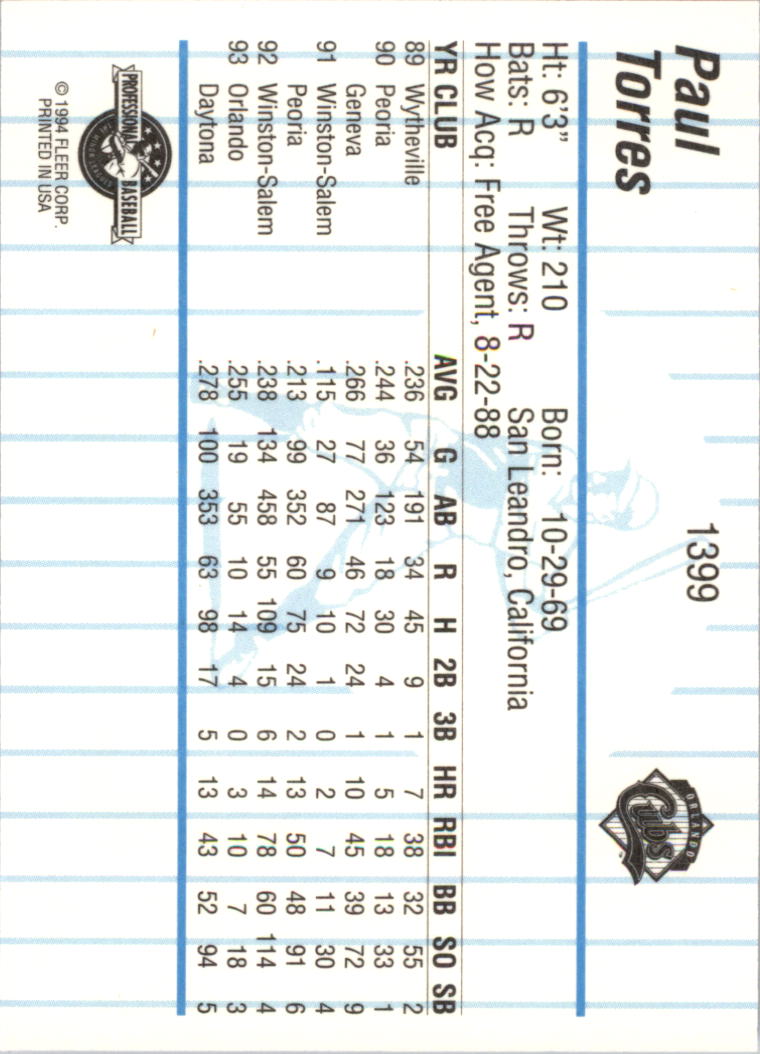 Paul
Torres
1399
ORLANDO
Cubs
Ht: 6'3" Wt: 210 Born: 10-29-69
Bats: R Throws: R San Leandro, California
How Acq: Free Agent, 8-22-88
YR CLUB AVG G AB R H 2B 3B HR RBI BB SO SB
89 Wytheville .236 54 191 34 45 9 1 7 38 32 55 2
90 Peoria .244 36 123 18 30 4 1 5 18 13 33 1
Geneva .266 77 271 46 72 24 1 10 45 39 72 9
91 Winston-Salem .115 27 87 9 10 1 0 2 7 11 30 4
Peoria .213 99 352 60 75 24 2 13 50 48 91 6
92 Winston-Salem .238 134 458 55 109 15 6 14 78 60 114 4
93 Orlando .255 19 55 10 14 4 0 3 10 7 18 3
Daytona .278 100 353 63 98 17 5 13 43 52 94 5
PROFESSIONAL BASEBALL
© 1994 FLEER CORP.
PRINTED IN USA